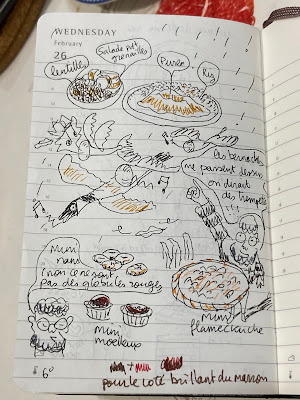 WEDNESDAY
February
26
Salade pdt
grenailles
lentilles
Purée
Riz
Les bernaches
me passent dessus
on dirait
des trompettes
!!!
Mini
nans
(non ce ne sont
pas des globules rouges
Mini
moelleux
Mini
flamekueche
+
6°
pour le côté brillant du marron